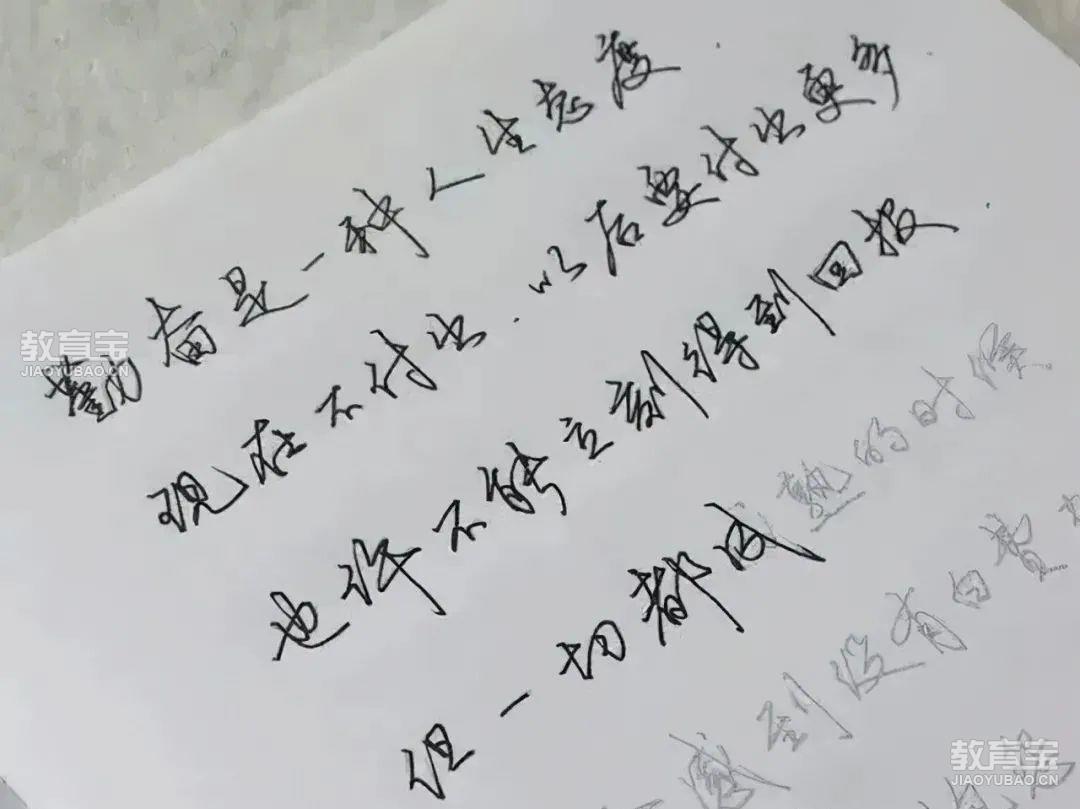 勤奋是一种人生态度
现在不付出.以后要付出更多
也许不能立刻得到回报
但一切都成熟的时候
感到没有白费
教育宝
JIAOYUBAO.CN
教育宝
JIAOYUBAO.CN